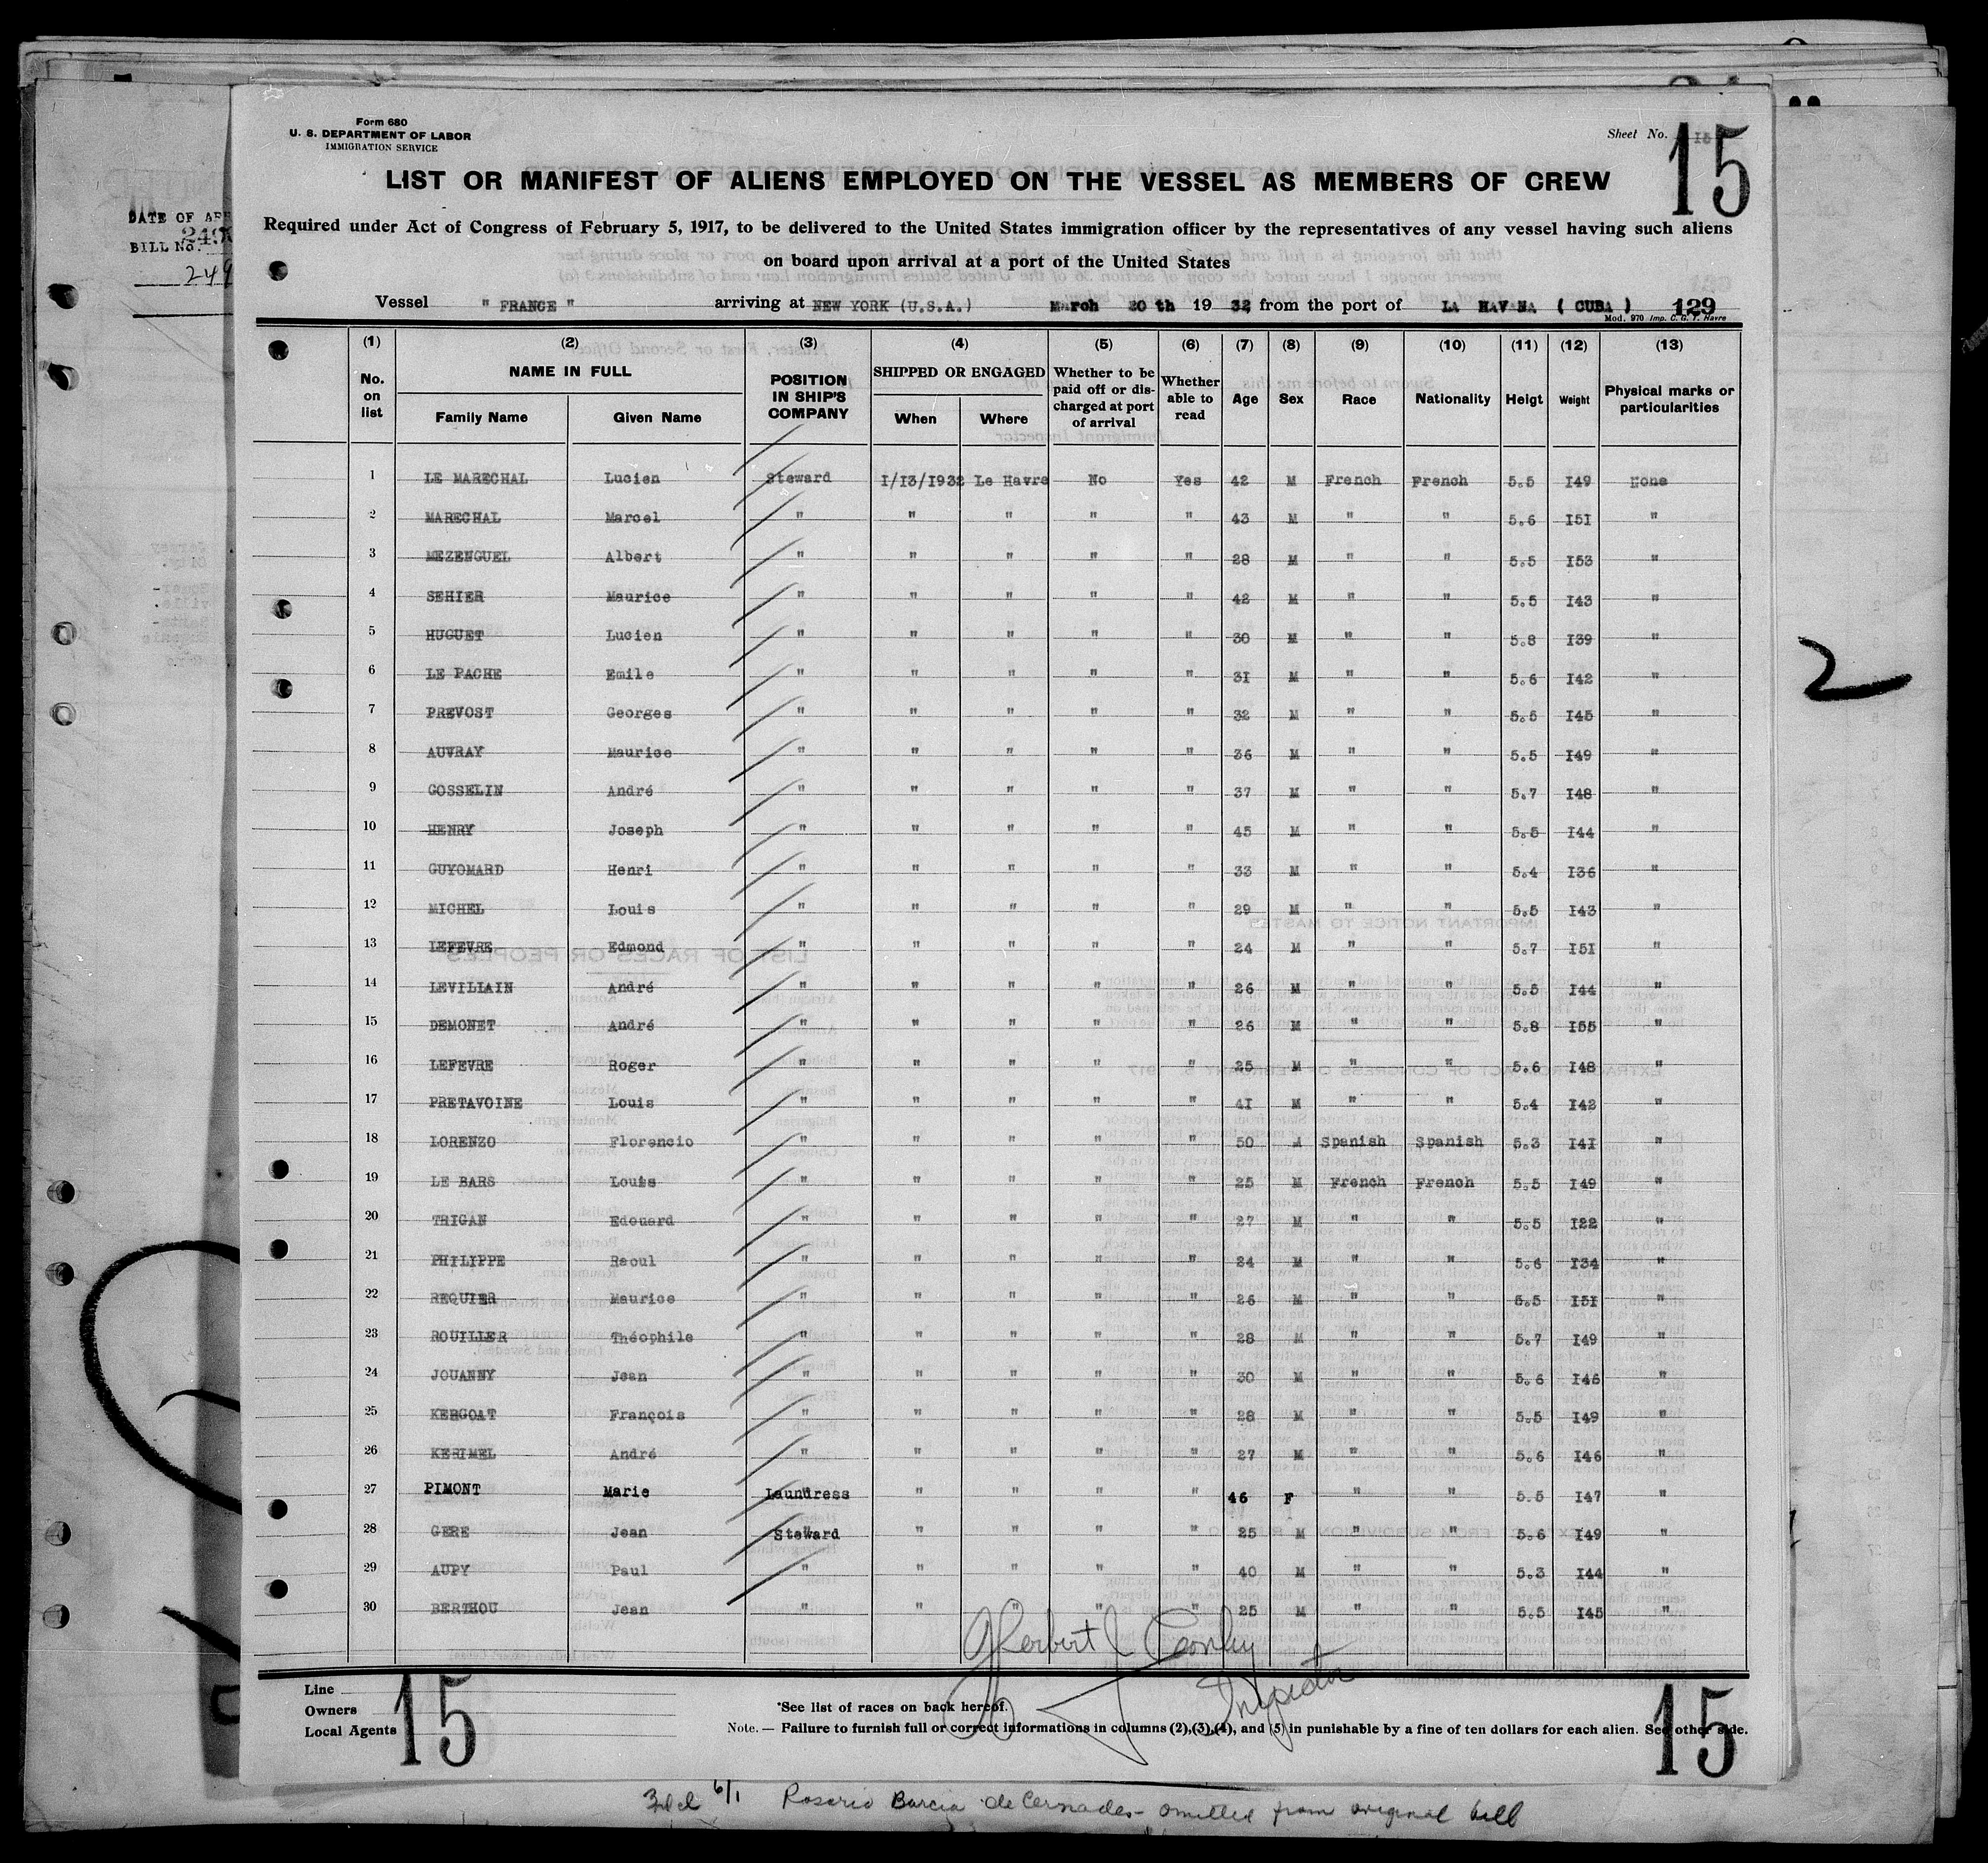 Form 680
U. S. DEPARTMENT OF LABOR
IMMIGRATION SERVICE
Sheet No. 15
15
LIST OR MANIFEST OF ALIENS EMPLOYED ON THE VESSEL AS MEMBERS OF CREW
Required under Act of Congress of February 5, 1917, to be delivered to the United States immigration officer by the representatives of any vessel having such aliens
on board upon arrival at a port of the United States
DATE OF ARR
BILL No.
249
Vessel " FRANCE " arriving at NEW YORK (U.S.A.) March 20 th 19 32 from the port of LA HAVANA ( CUBA ) 129
Mod. 970 Imp. C. G. T. Havre
(1) (2) (3) (4) (5) (6) (7) (8) (9) (10) (11) (12) (13)
No. on list NAME IN FULL Family Name Given Name POSITION IN SHIP'S COMPANY SHIPPED OR ENGAGED When Where Whether to be paid off or discharged at port of arrival Whether able to read Age Sex Race Nationality Helgt Weight Physical marks or particularities
1 LE MARECHAL Lucien Steward I/I3/I932 Le Havre No Yes 42 M French French 5.5 I49 None
2 MARECHAL Marcel " " " " " 43 M " " 5.6 I5I "
3 MEZENGUEL Albert " " " " " 28 M " " 5.5 I53 "
4 SEHIER Maurice " " " " " 42 M " " 5.5 I43 "
5 HUGUET Lucien " " " " " 30 M " " 5.8 I39 "
6 LE PACHE Emile " " " " " 3I M " " 5.6 I42 "
7 PREVOST Georges " " " " " 32 M " " 5.6 I45 "
8 AUVRAY Maurice " " " " " 36 M " " 5.5 I49 "
9 GOSSELIN André " " " " " 37 M " " 5.7 I48 "
10 HENRY Joseph " " " " " 45 M " " 5.5 I44 "
11 GUYOMARD Henri " " " " " 33 M " " 5.4 I36 "
12 MICHEL Louis " " " " " 29 M " " 5.5 I43 "
13 LEFEVRE Edmond " " " " " 24 M " " 5.7 I5I "
14 LEVILIAIN André " " " " " 26 M " " 5.5 I44 "
15 DEMONET André " " " " " 26 M " " 5.8 I55 "
16 LEFEVRE Roger " " " " " 25 M " " 5.6 I48 "
17 PRETAVOINE Louis " " " " " 4I M " " 5.4 I42 "
18 LORENZO Florencio " " " " " 50 M Spanish Spanish 5.3 I4I "
19 LE BARS Louis " " " " " 25 M French French 5.5 I49 "
20 TRIGAN Edouard " " " " " 27 M " " 5.5 I22 "
21 PHILIPPE Raoul " " " " " 24 M " " 5.6 I34 "
22 REQUIER Maurice " " " " " 26 M " " 5.5 I5I "
23 ROUILLER Théophile " " " " " 28 M " " 5.7 I49 "
24 JOUANNY Jean " " " " " 30 M " " 5.6 I46 "
25 KERGOAT François " " " " " 28 M " " 5.5 I49 "
26 KERIMEL André " " " " " 27 M " " 5.6 I46 "
27 PIMONT Marie Laundress " " " " 46 F " " 5.5 I47 "
28 GERE Jean Steward " " " " 25 M " " 5.6 I49 "
29 AUPY Paul " " " " " 40 M " " 5.3 I44 "
30 BERTHOU Jean " " " " " 25 M " " 5.5 I45 "
Herbert J. Conley
Inspector
Line
Owners
Local Agents
15
*See list of races on back hereof.
Note. — Failure to furnish full or correct informations in columns (2),(3),(4), and (5) in punishable by a fine of ten dollars for each alien. See other side.
15
6/1 Rosario Barcia de Cernadas - omitted from original bill
2